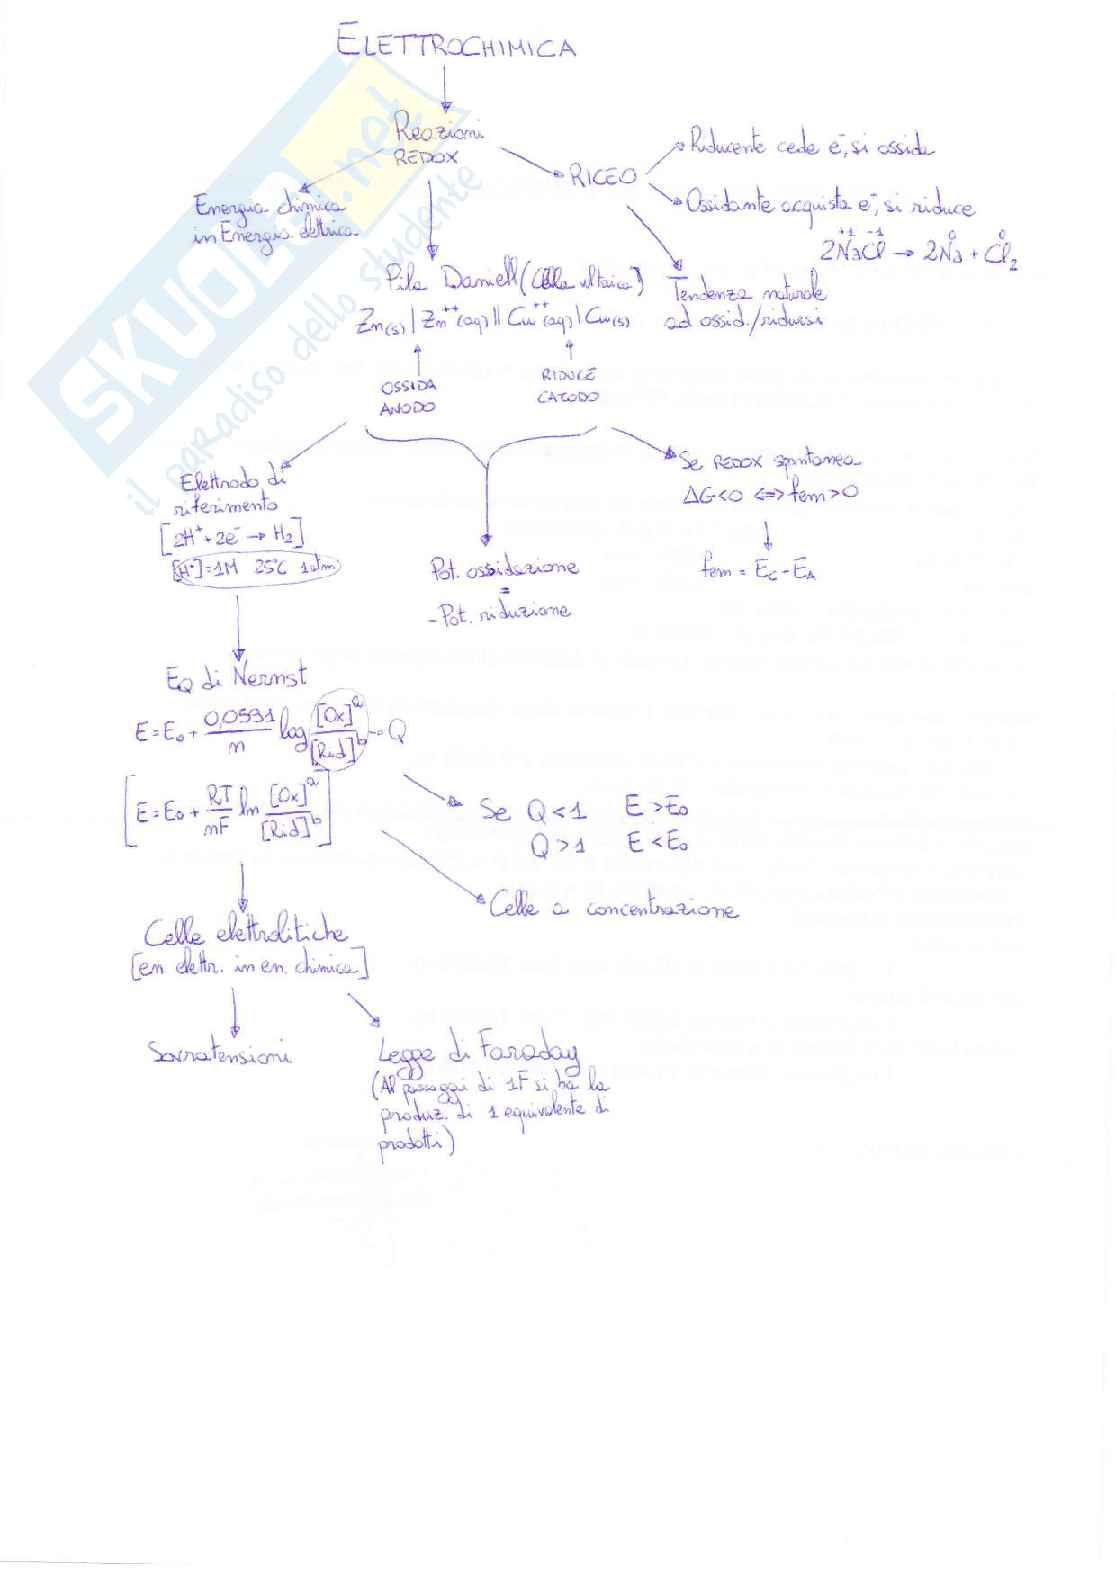 ELETTROCHIMICA
Reazioni
REDOX
Energia chimica
in Energia elettrica
RICEO
Riducente cede e⁻, si ossida
Ossidante acquista e⁻, si riduce
+1 -1 0 0
2NaCl → 2Na + Cl₂
Tendenza naturale
ad ossid./ridursi
Pila Daniell (Cella voltaica)
Zn(s) | Zn⁺⁺(aq) || Cu⁺⁺(aq) | Cu(s)
OSSIDA
ANODO
RIDUCE
CATODO
Elettrodo di
riferimento
[2H⁺ + 2e⁻ → H₂]
[H⁺]=1M 25°C 1atm
Pot. ossidazione
=
- Pot. riduzione
Se REDOX spontanea
ΔG<0 <=> fem>0
fem = E_C - E_A
EQ di Nernst
E = E₀ + 0,0591/n log [Ox]^a/[Rid]^b → Q
[E = E₀ + RT/nF ln [Ox]^a/[Rid]^b]
Se Q<1 E>E₀
Q>1 E<E₀
Celle a concentrazione
Celle elettrolitiche
[en elettr. in en. chimica]
Sovratensioni
Legge di Faraday
(Al passaggi di 1F si ha la
produz. di 1 equivalente di
prodotti)
SKUOLA.net
il paradiso dello studente